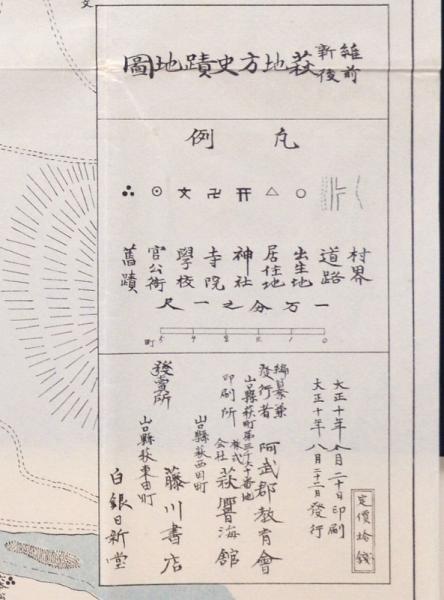 維新前後萩地方史蹟地圖
凡例
村界
道路
○ 出生地
△ 居住地
神社
卍 寺院
文 學校
⊙ 官公衙
∴ 舊蹟
一万分之一尺
町 5 4 3 2 1 0
定價拾錢
大正十年八月二十日印刷
大正十年八月二十二日發行
編纂兼發行者 阿武郡教育會
山口縣萩町第三千六十番地
印刷所 株式会社 萩響海舘
山口縣萩西田町
發賣所 藤川書店
山口縣萩東田町
白銀日新堂
文